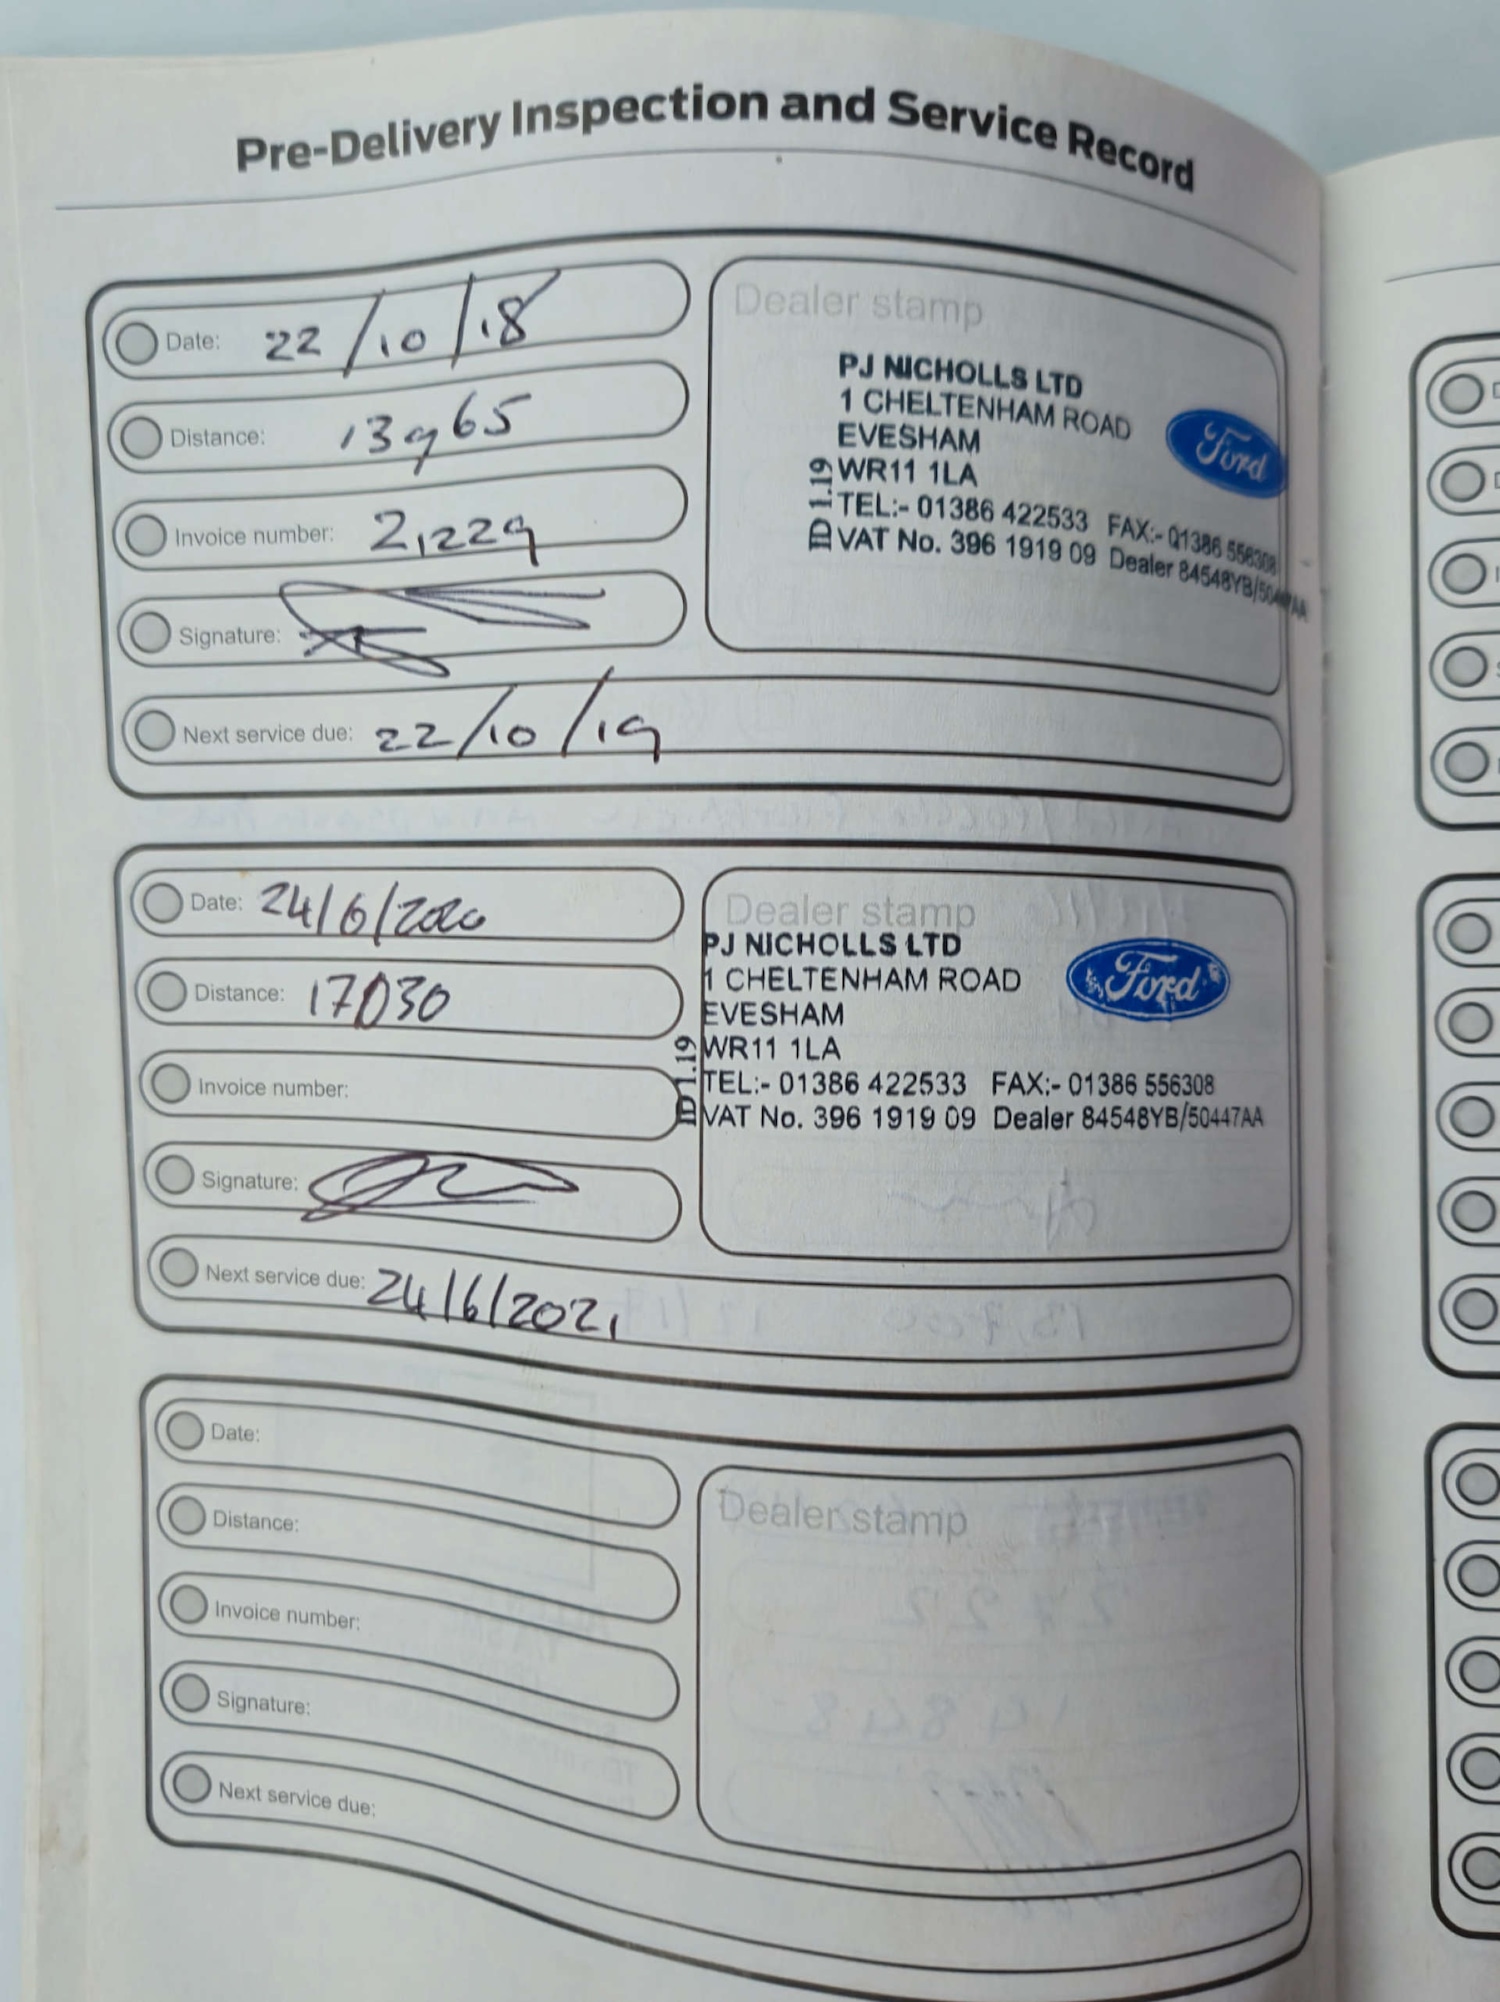 Pre-Delivery Inspection and Service Record
Date: 22/10/18
Distance: 13965
Invoice number: 21229
Signature:
Next service due: 22/10/19
Dealer stamp
PJ NICHOLLS LTD
1 CHELTENHAM ROAD
EVESHAM
WR11 1LA
TEL:- 01386 422533 FAX:- 01386 556308
VAT No. 396 1919 09 Dealer 84548YB/50447AA
ID 1.19
Ford
Date: 24/6/2020
Distance: 17030
Invoice number:
Signature:
Next service due: 24/6/2021
Dealer stamp
PJ NICHOLLS LTD
1 CHELTENHAM ROAD
EVESHAM
WR11 1LA
TEL:- 01386 422533 FAX:- 01386 556308
VAT No. 396 1919 09 Dealer 84548YB/50447AA
ID 1.19
Ford
Date:
Distance:
Invoice number:
Signature:
Next service due:
Dealer stamp